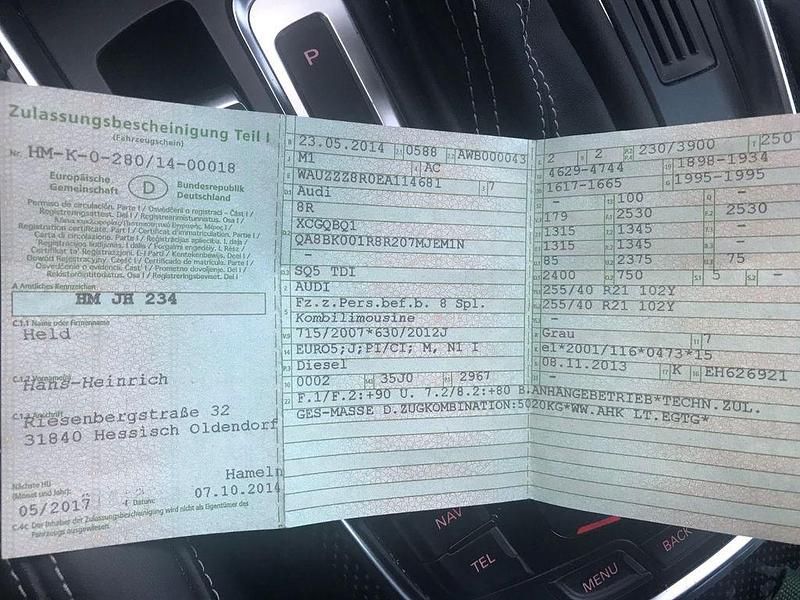 P
Zulassungsbescheinigung Teil I
(Fahrzeugschein)
Nr. HM-K-0-280/14-00018
Europäische
Gemeinschaft
D
Bundesrepublik
Deutschland
Permiso de circulación. Parte I / Osvědčení o registraci - Část I /
Registreringsattest. Del I / Registreerimistunnistus. Osa I /
Registration certificate. Part I / Certificat d'immatriculation. Partie I /
Carta di circolazione. Parte I /
A Amtliches Kennzeichen
HM JH 234
C.1.1 Name oder Firmenname
Held
C.1.2 Vorname(n)
Hans-Heinrich
C.1.3 Anschrift
Riesenbergstraße 32
31840 Hessisch Oldendorf
Nächste HU
(Monat und Jahr):
Hameln
05/2017
Datum:
07.10.2014
C.4c Der Inhaber der Zulassungsbescheinigung wird nicht als Eigentümer des
Fahrzeugs ausgewiesen.
23.05.2014 0588 AWB000043
M1 AC
WAUZZZ8R0EA114681 7
Audi
8R
XCGQBQ1
QA8BK001R8R207MJEM1N
-
SQ5 TDI
AUDI
Fz.z.Pers.bef.b. 8 Spl.
Kombilimousine
715/2007*630/2012J
EURO5;J;PI/CI; M, N1 I
Diesel
0002 35J0 2967
F.1/F.2:+90 U. 7.2/8.2:+80 B.ANHÄNGEBETRIEB*TECHN.ZUL.
GES-MASSE D.ZUGKOMBINATION:5020KG*WW.AHK LT.EGTG*
2 2 230/3900 250
4629-4744 1898-1934
1617-1665 1995-1995
- 100 - -
179 2530 2530
1315 1345 -
1315 1345 -
85 2375 75
2400 750 5 -
255/40 R21 102Y
255/40 R21 102Y
-
Grau 7
e1*2001/116*0473*15
08.11.2013 K EH626921
NAV
TEL
MENU
BACK